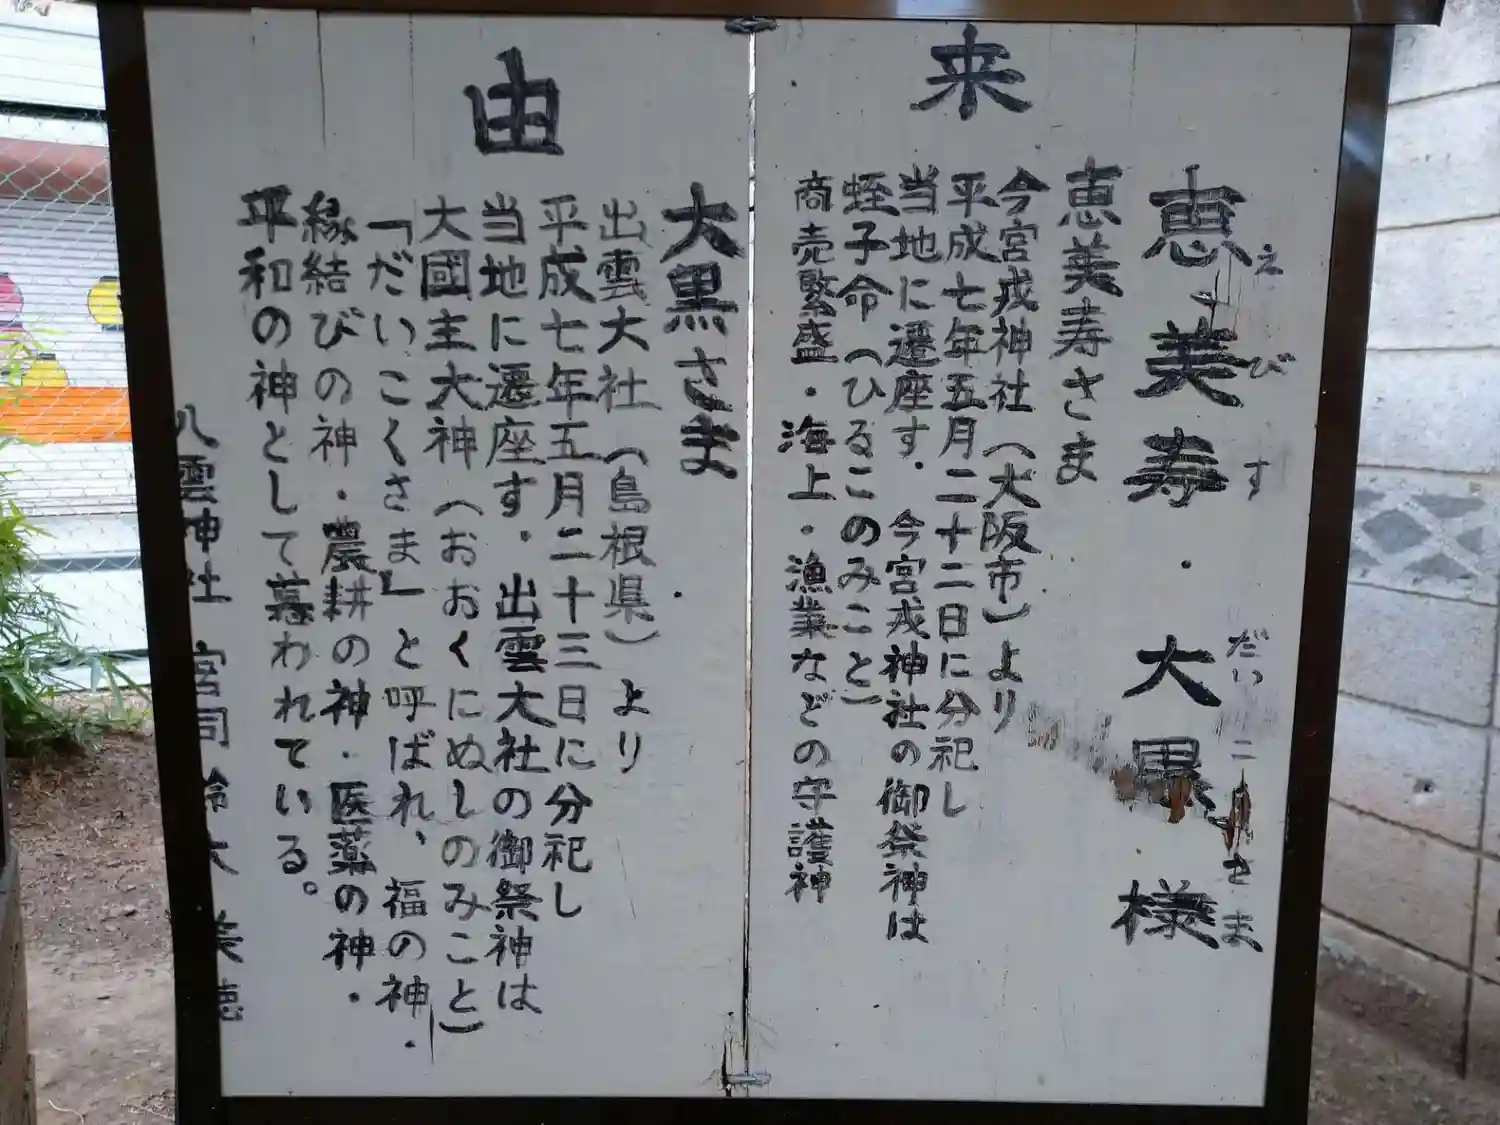 恵美寿・大黒様
えびす だいこくさま
来由
恵美寿さま
今宮戎神社(大阪市)より
平成七年五月二十二日に分祀し
当地に遷座す。今宮戎神社の御祭神は
蛭子命(ひるこのみこと)
商売繁盛・海上・漁業などの守護神
大黒さま
出雲大社(島根県)より
平成七年五月二十三日に分祀し
当地に遷座す。出雲大社の御祭神は
大國主大神(おおくにぬしのみこと)
「だいこくさま」と呼ばれ、福の神・
縁結びの神・農耕の神・医薬の神・
平和の神として慕われている。
八雲神社 宮司 鈴木